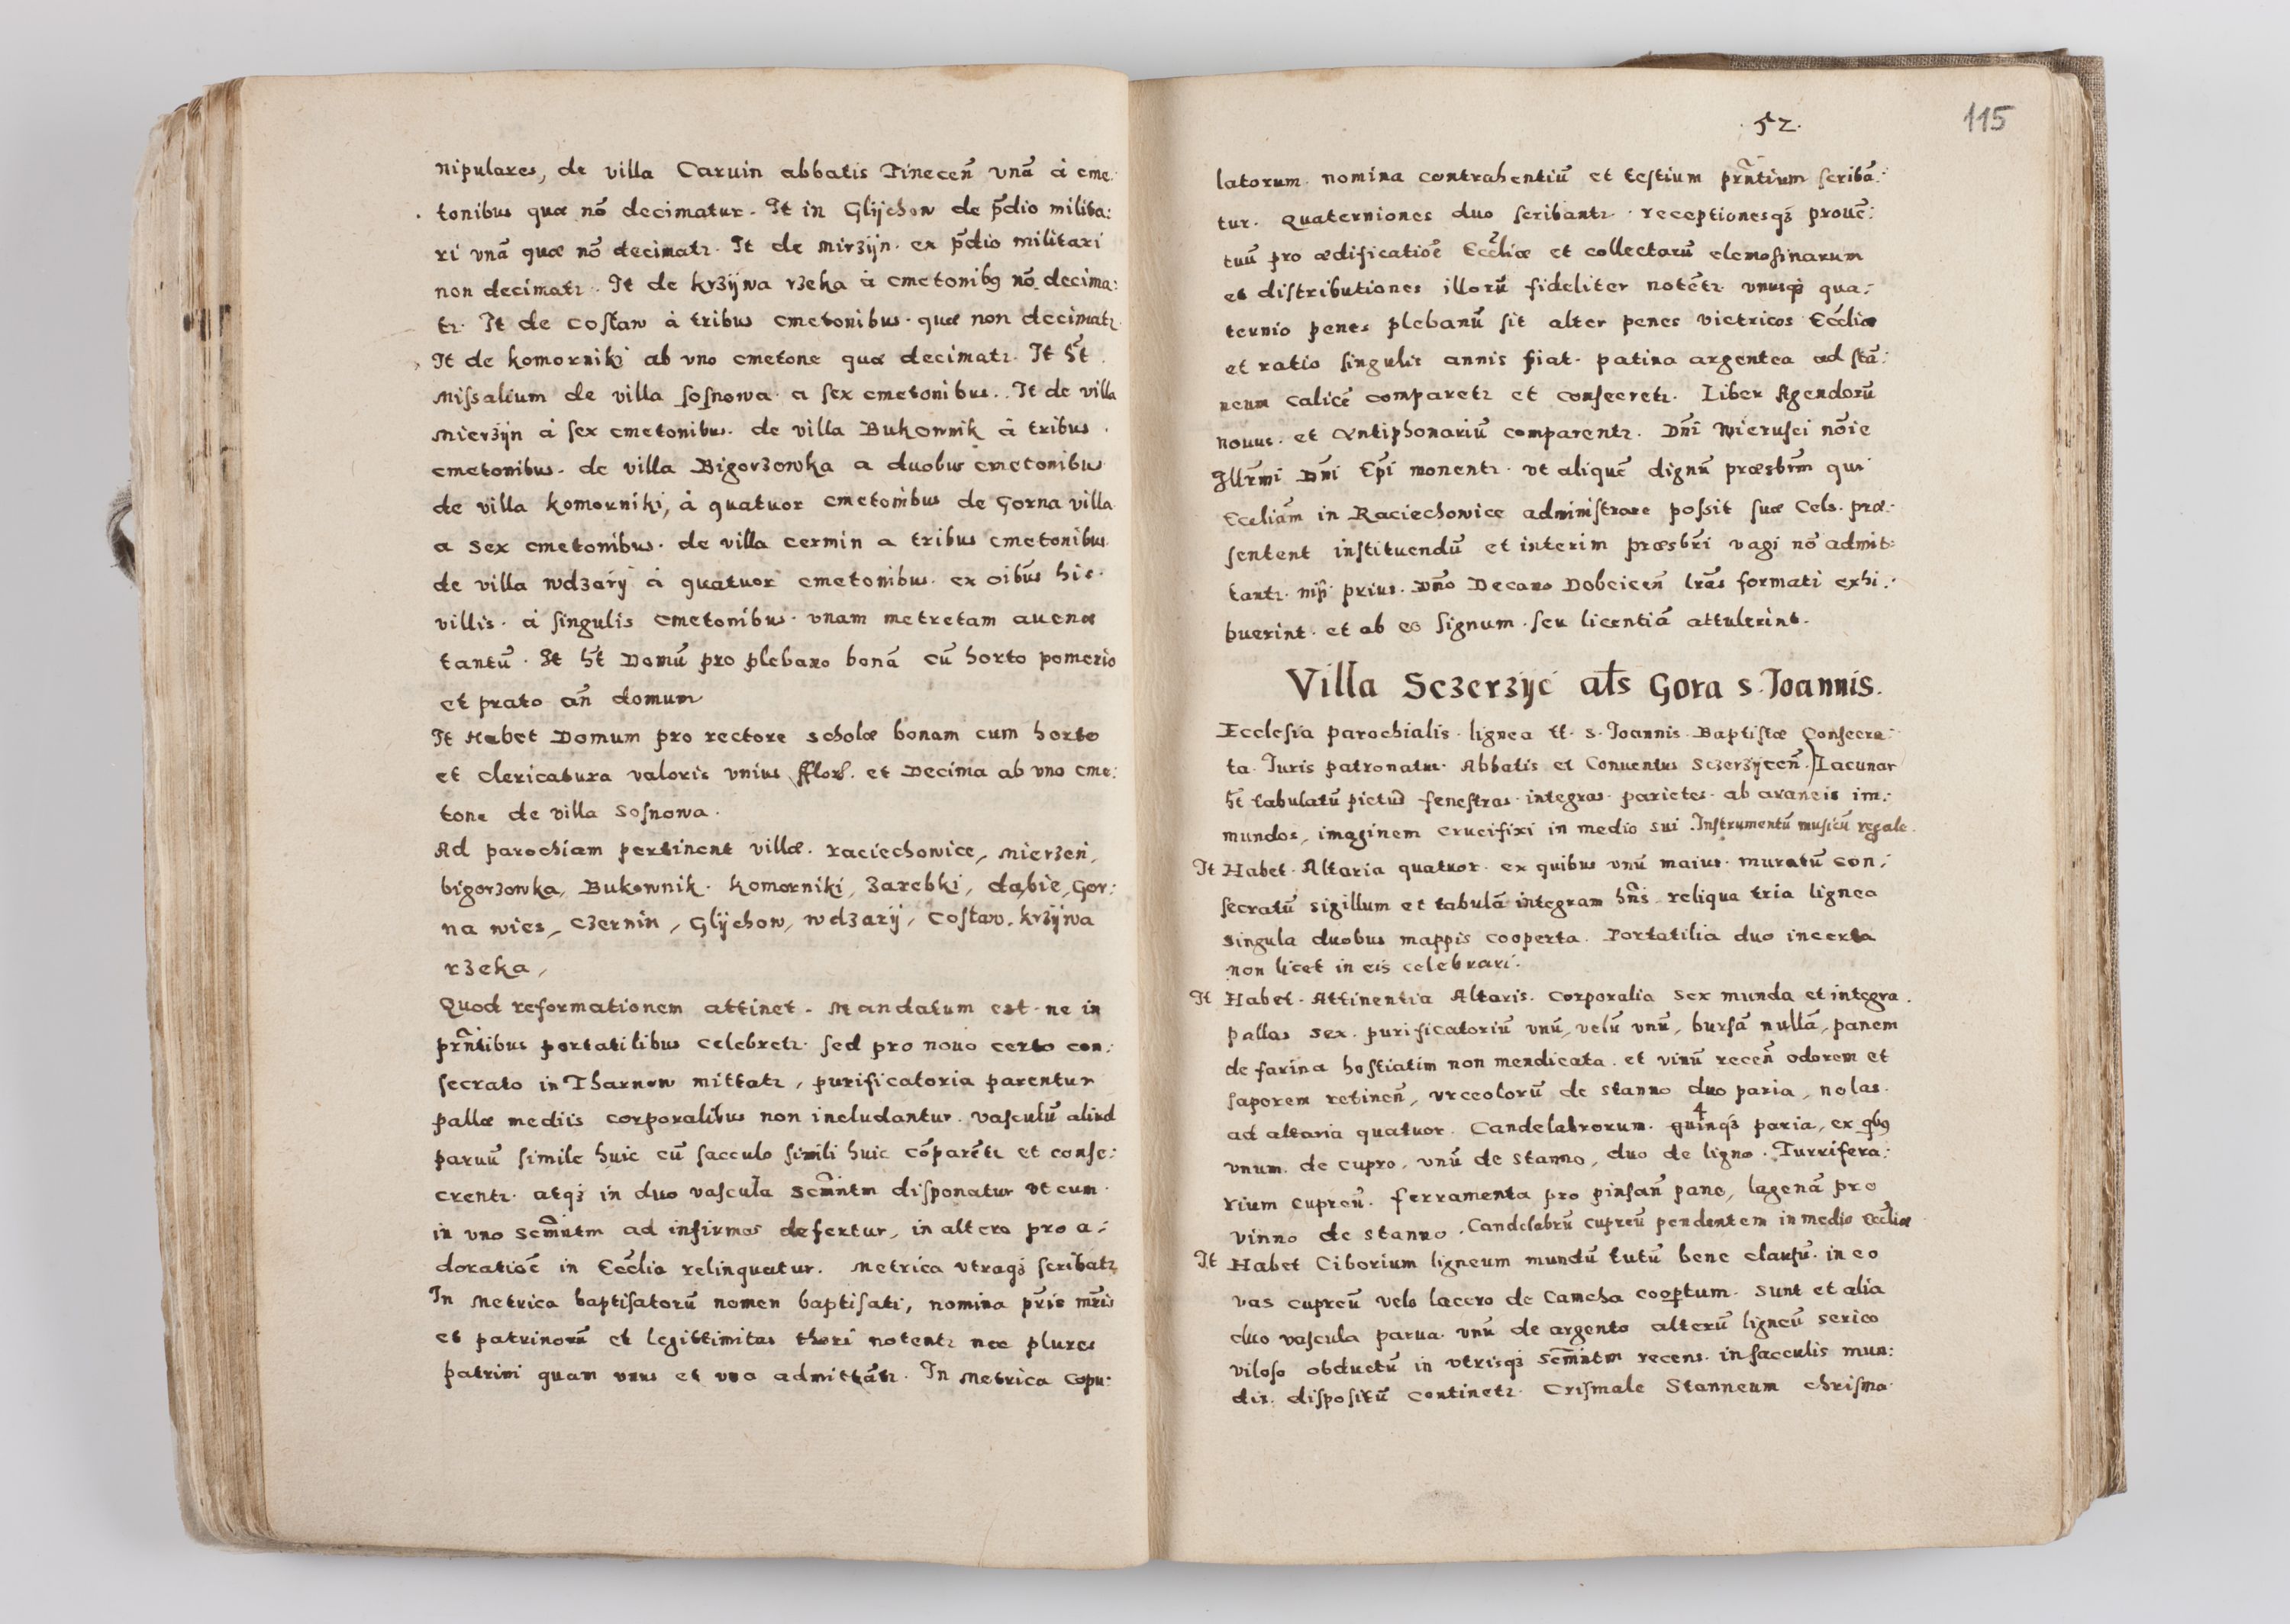 nipulares, de villa Caruin abbatis Tineceñ vnā à cme:
tonibus quæ nō decimatur. It in Glijchow de p̄dio milita:
ri vnā quæ nō decimatr. It de mirzijn. ex p̄dio militari
non decimatr. It de krzijwa rzeka à cmetonibꝰ nō decima:
tr. It de costaw à tribus cmetonibus. quæ non decimatr.
It de komorniki ab vno cmetone quæ decimatr. It h̄t
Missalium de villa sosnowa a sex cmetonibus. It de villa
Mierzijn à sex cmetonibus. de villa Bukownik à tribus
cmetonibus. de villa Bigorzowka a duobus cmetonibus
de villa komorniki, à quatuor cmetonibus de Gorna villa
a sex cmetonibus. de villa cermin a tribus cmetonibus
de villa wdzarÿ à quatuor cmetonibus. ex oibūs his
villis. à singulis cmetonibus. vnam metretam auenæ
tantū. It h̄t Domū pro plebano bonā cū horto pomerio
et prato añ domum
It Habet Domum pro rectore scholæ bonam cum horto
et clericatura valoris vnius fflor. et Decima ab vno cme:
tone de villa sosnowa.
Ad parochiam pertinent villæ. raciechowice, mierzen,
bigorzowka, Bukownik. komorniki, zarebki, dąbie, Gor:
na wies, czernin, Glÿchow, wdzarij, Costaw. krzijwa
rzeka,
Quod reformationem attinet. Mandatum est ne in
prn̄tibus portatilibus celebretr. sed pro nouo certo con:
secrato in Tharnow mittatr, purificatoria parentur
pallæ mediis corporalibus non includantur. vasculū aliud
paruū simile huic cū sacculo simili huic cōparētr et conse:
crentr. atqз in duo vascula Scm̄ntm disponatur vt cum
in vno scm̄ntm ad infirmos defertur, in altero pro a:
doratiōe in Ecc̄lia relinquatur. Metrica vtraqз scribatr
In Metrica baptisatorū nomen baptisati, nomina pr̄is mr̄is
et patrinorū et legittimitas thori notentr nec plures
patrini quam vnus et vna admittātr. In Metrica copu:
115
52.
latorum nomina contrahentiū et testium prn̄tium scribā:
tur. Quaterniones duo scribantr. receptionesqз prouē:
tuū pro ædificatiōe Ecc̄liæ et collectarū elemosinarum
et distributiones illorū fideliter notētr vnusqз qua:
ternio penes plebanū sit alter penes vietricos Ecc̄liæ
et ratio singulis annis fiat. patina argentea ad stā:
neum calicē comparetr et consecretr. Liber Agendorū
nouus. et Antiphonariū comparentr. Dn̄i Wierusci nōie
Illr̄mi Dn̄i Ep̄i monentr. vt aliquē dignū præsbr̄m qui
Eccliām in Raciechowice administrare possit suæ Cels. præ:
sentent instituendū et interim præsbr̄i vagi nō admit:
tantr. nisi prius. Dn̄o Decano Dobciceñ lrās formati exhi:
buerint. et ab eo signum. seu licentiā attulerint.
Villa Sczerzÿc als̄ Gora s. Joannis.
Ecclesia parochialis. lignea tt. s. Joannis Baptistæ Consecra:
ta. Iuris patronatus. Abbatis et Conuentus Sczerzijceñ. Lacunar
h̄t tabulatū pictū fenestras. integras. parietes. ab araneis im:
mundos, imaginem crucifixi in medio sui. Instrumentū musicū regale.
It Habet. Altaria quatuor. ex quibus vnū maius. muratū con:
secratū sigillum et tabulā integram hn̄s reliqua tria lignea
singula duobus mappis cooperta. Portatilia duo incerta
non licet in eis celebrari.
It Habet. Attinentia Altaris. corporalia sex munda et integra.
pallas sex. purificatoriū vnū, velū vnū, bursā nullā, panem
de farina hostiatim non mendicata. et vinū receñ odorem et
saporem retineñ, vrceolorū de stanno duo paria, nolas
ad altaria quatuor. Candelabrorum. quinqз 4 paria, ex qbꝰ
vnum. de cupro, vnū de stanno, duo de ligno. Turrifera:
rium cupreū. ferramenta pro pinsañ pane, lagenā pro
vinno de stanno. Candelabrū cupreū pendentem in medio Ecc̄liæ
It Habet Ciborium ligneum mundū tutū bene clausū. in eo
vas cupreū velo lacero de Camcha coopertum. sunt et alia
duo vascula parua. vnū de argento alterū ligneū serico
viloso obductū in vtrisqз scm̄ntm recens. in sacculis mun:
dis. dispositū continetr. Crismale Stanneum chrisma